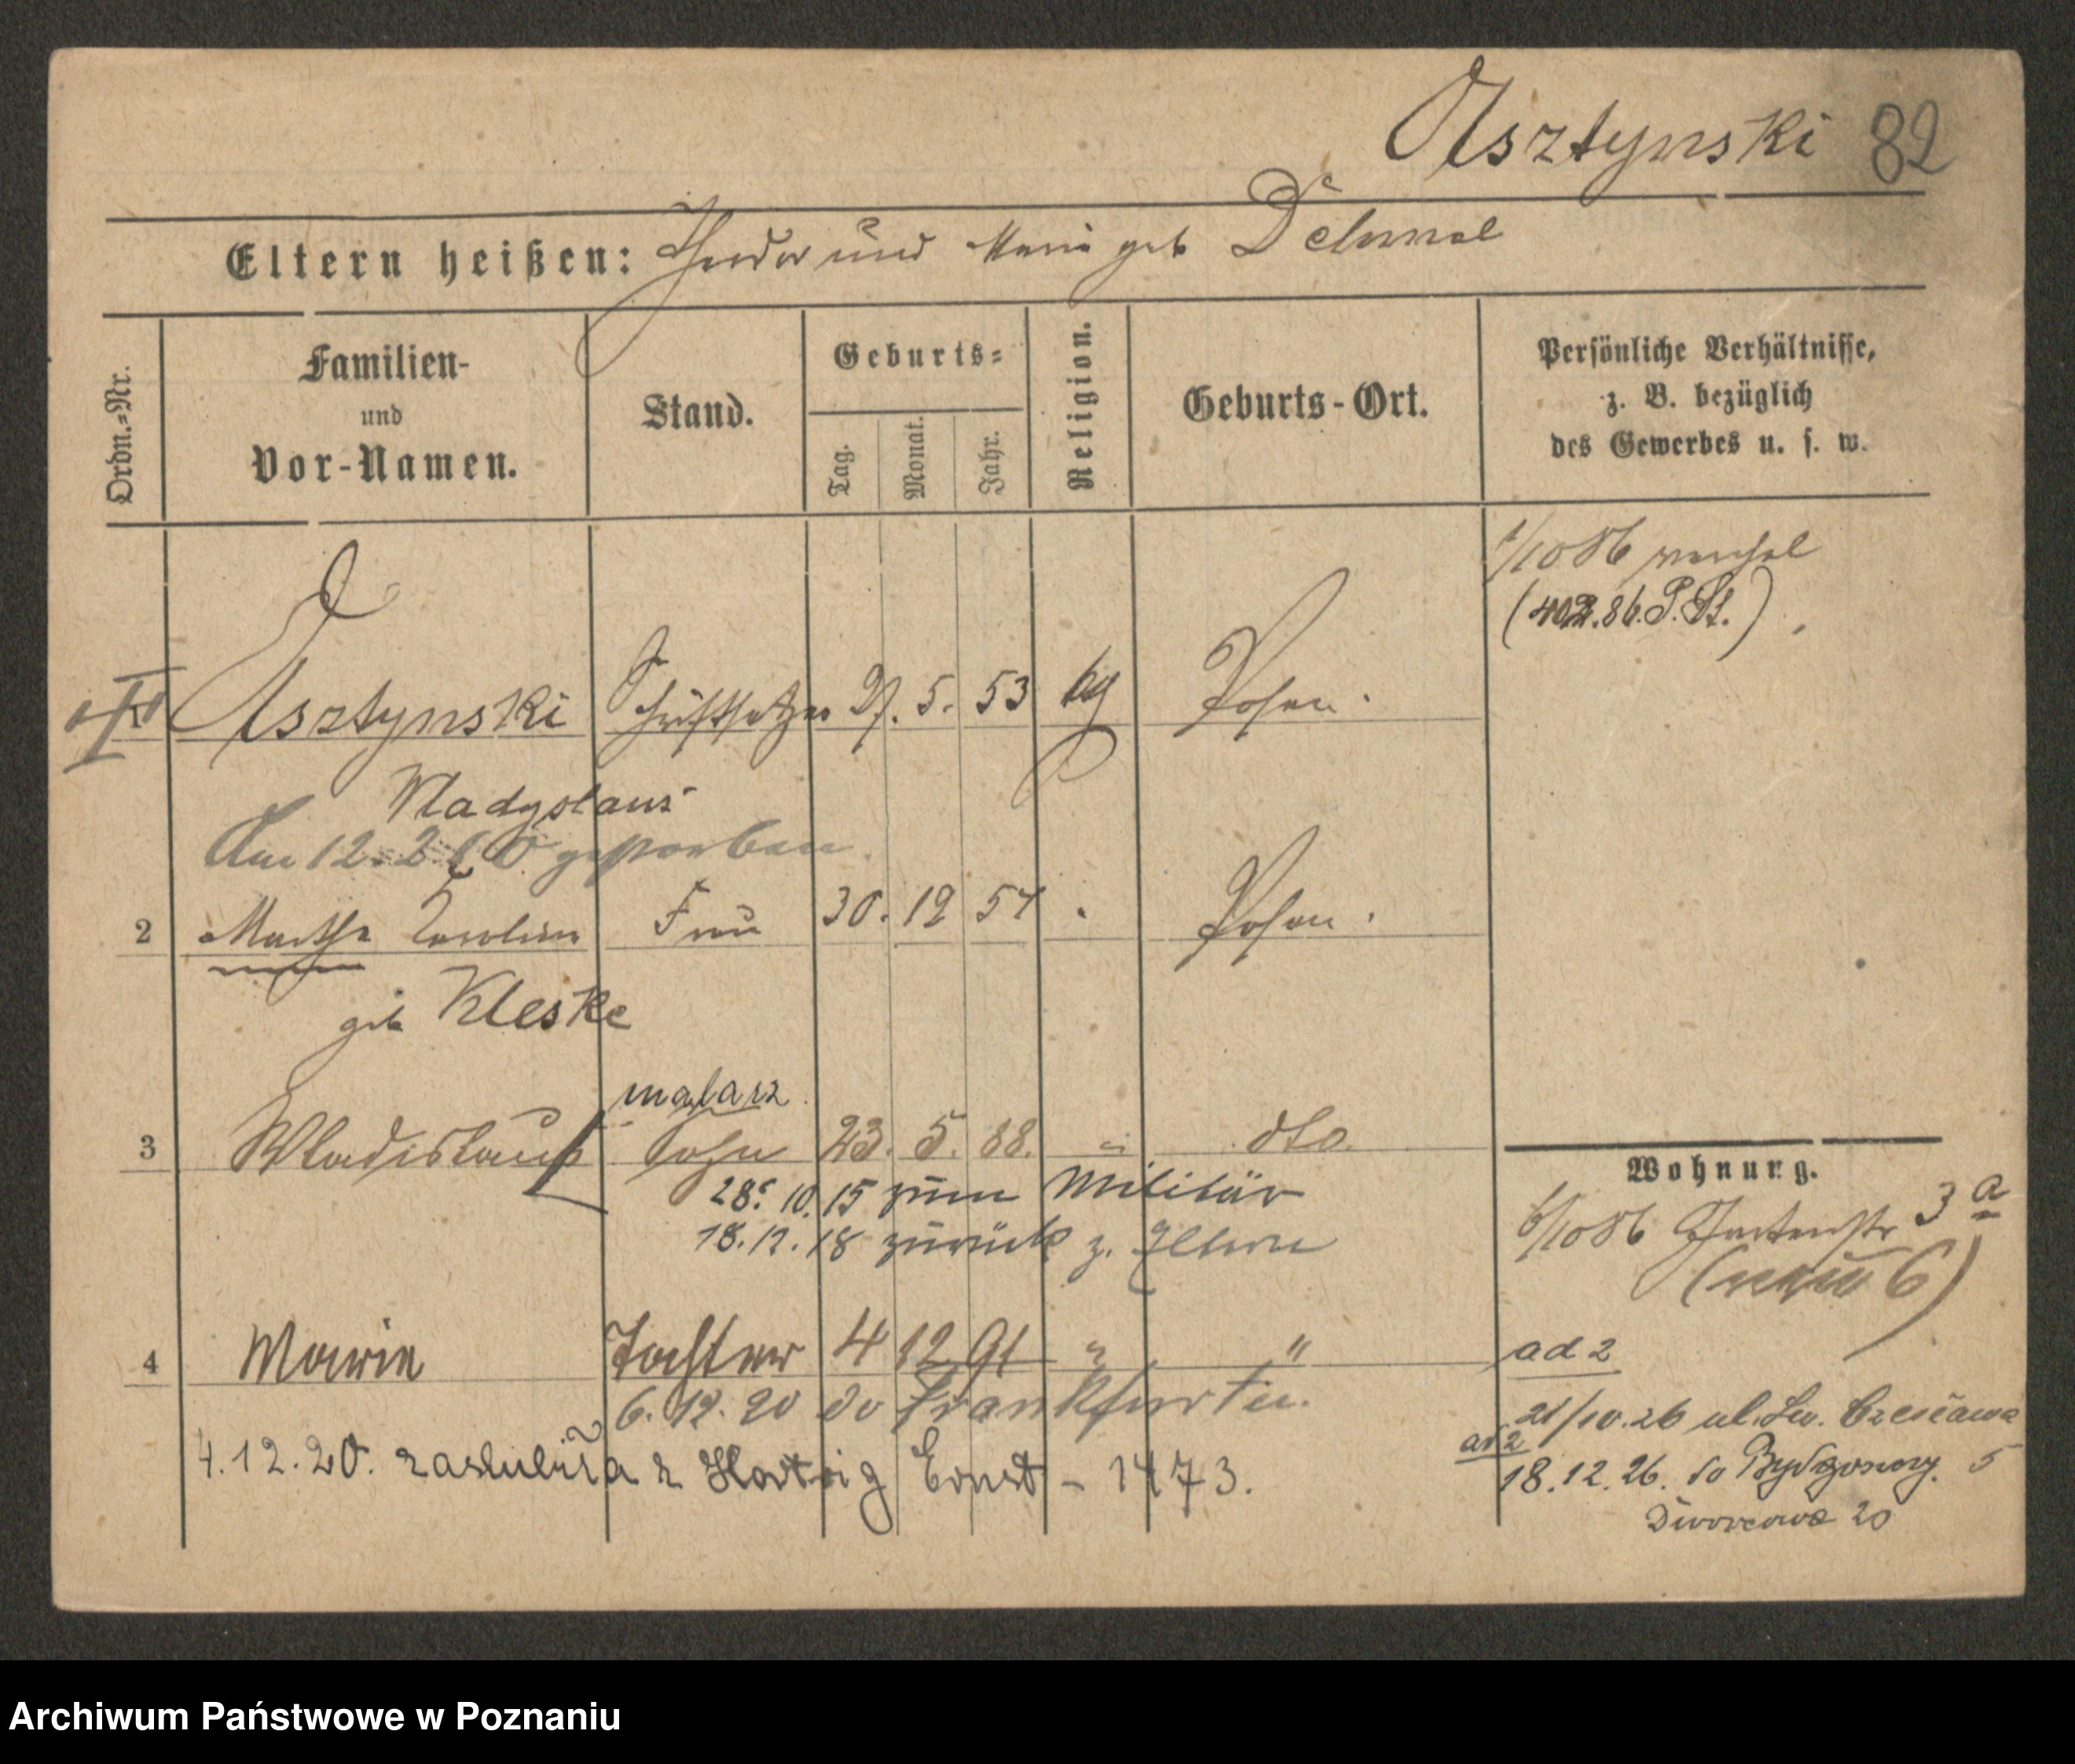 Olsztynski 82
Eltern heißen: Theodor und Maria geb Dehmel
Ordn.=Nr.
Familien-
und
Vor-Namen.
Stand.
Geburts=
Tag.
Monat.
Jahr.
Religion.
Geburts-Ort.
Persönliche Verhältnisse,
z. B. bezüglich
des Gewerbes u. s. w.
1/10 86
(402.86. P. St.)
Olsztynski Schriftsetzer 27. 5. 53 kg Posen.
Wladyslaus
Am 12. 2 gestorben
2 Martha Frau 30. 12 54 Posen.
geb Kleske
malarz
3 Wladislaus Sohn 23. 5. 88. " dto.
28. 10. 15 zum Militär
18. 12. 18 zurück z. Eltern
Wohnung.
6/10 86 Gartenstr 3 a
(neue 6)
4 Marie Tochter 4 12 91 " "
6. 12. 20 do Frankfurtu.
4. 12. 20. zaślubiła z Hartwig Ernst - 1473.
ad 2
21/10. 26 ul. Św. Czesława
5
ad 2
18. 12. 26. do Bydgoszczy.
Dworcowa 20
Archiwum Państwowe w Poznaniu